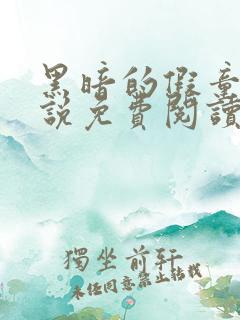 黑暗的假童
說免費閱讀
獨坐前軒
未經同意禁止轉載